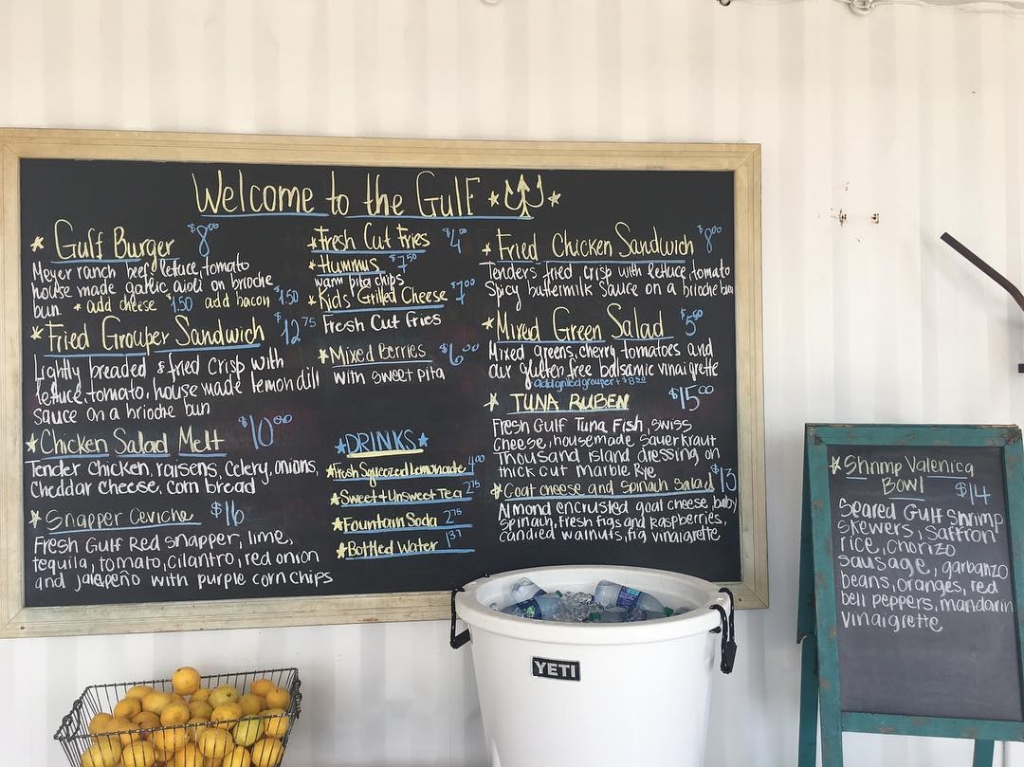 Welcome to the Gulf
Gulf Burger $8⁰⁰
Meyer ranch beef, lettuce, tomato
house made garlic aioli on brioche
bun * add cheese $1.50 add bacon $1.50
Fried Grouper Sandwich $12⁷⁵
Lightly breaded & fried crisp with
lettuce, tomato, house made lemon dill
sauce on a brioche bun
Chicken Salad Melt $10⁰⁰
Tender chicken, raisens, celery, onions,
cheddar cheese, corn bread
Snapper Ceviche $16
Fresh Gulf Red snapper, lime,
tequila, tomato, cilantro, red onion
and jalapeño with purple corn chips
Fresh Cut Fries $4⁰⁰
Hummus $7⁵⁰
warm pita chips
Kids Grilled Cheese $7⁰⁰
Fresh Cut Fries
Mixed Berries $6⁰⁰
with sweet pita
DRINKS
Fresh Sqeezed lemonade 4⁰⁰
Sweet + UnSweet Tea 2⁷⁵
Fountain Soda 2⁷⁵
Bottled Water 1³⁷
Fried Chicken Sandwich $8⁰⁰
Tenders fried crisp with lettuce, tomato
Spicy buttermilk sauce on a brioche bun
Mixed Green Salad $5⁵⁰
Mixed greens, cherry tomatoes and
our gluten free balsamic vinaigrette
add grilled grouper + $8.00
TUNA RUBEN $15⁰⁰
Fresh Gulf Tuna Fish, swiss
cheese, housemade sauerkraut
thousand island dressing on
thick cut Marble Rye
Goat cheese and spinach salad $13
Almond encrusted goat cheese, baby
spinach, fresh figs and raspberries,
candied walnuts, fig vinaigrette
Shrimp Valenicq
Bowl $14
Seared Gulf shrimp
skewers, saffron
rice, chorizo
sausage, garbanzo
beans, oranges, red
bell peppers, mandarin
vinaigrette
YETI